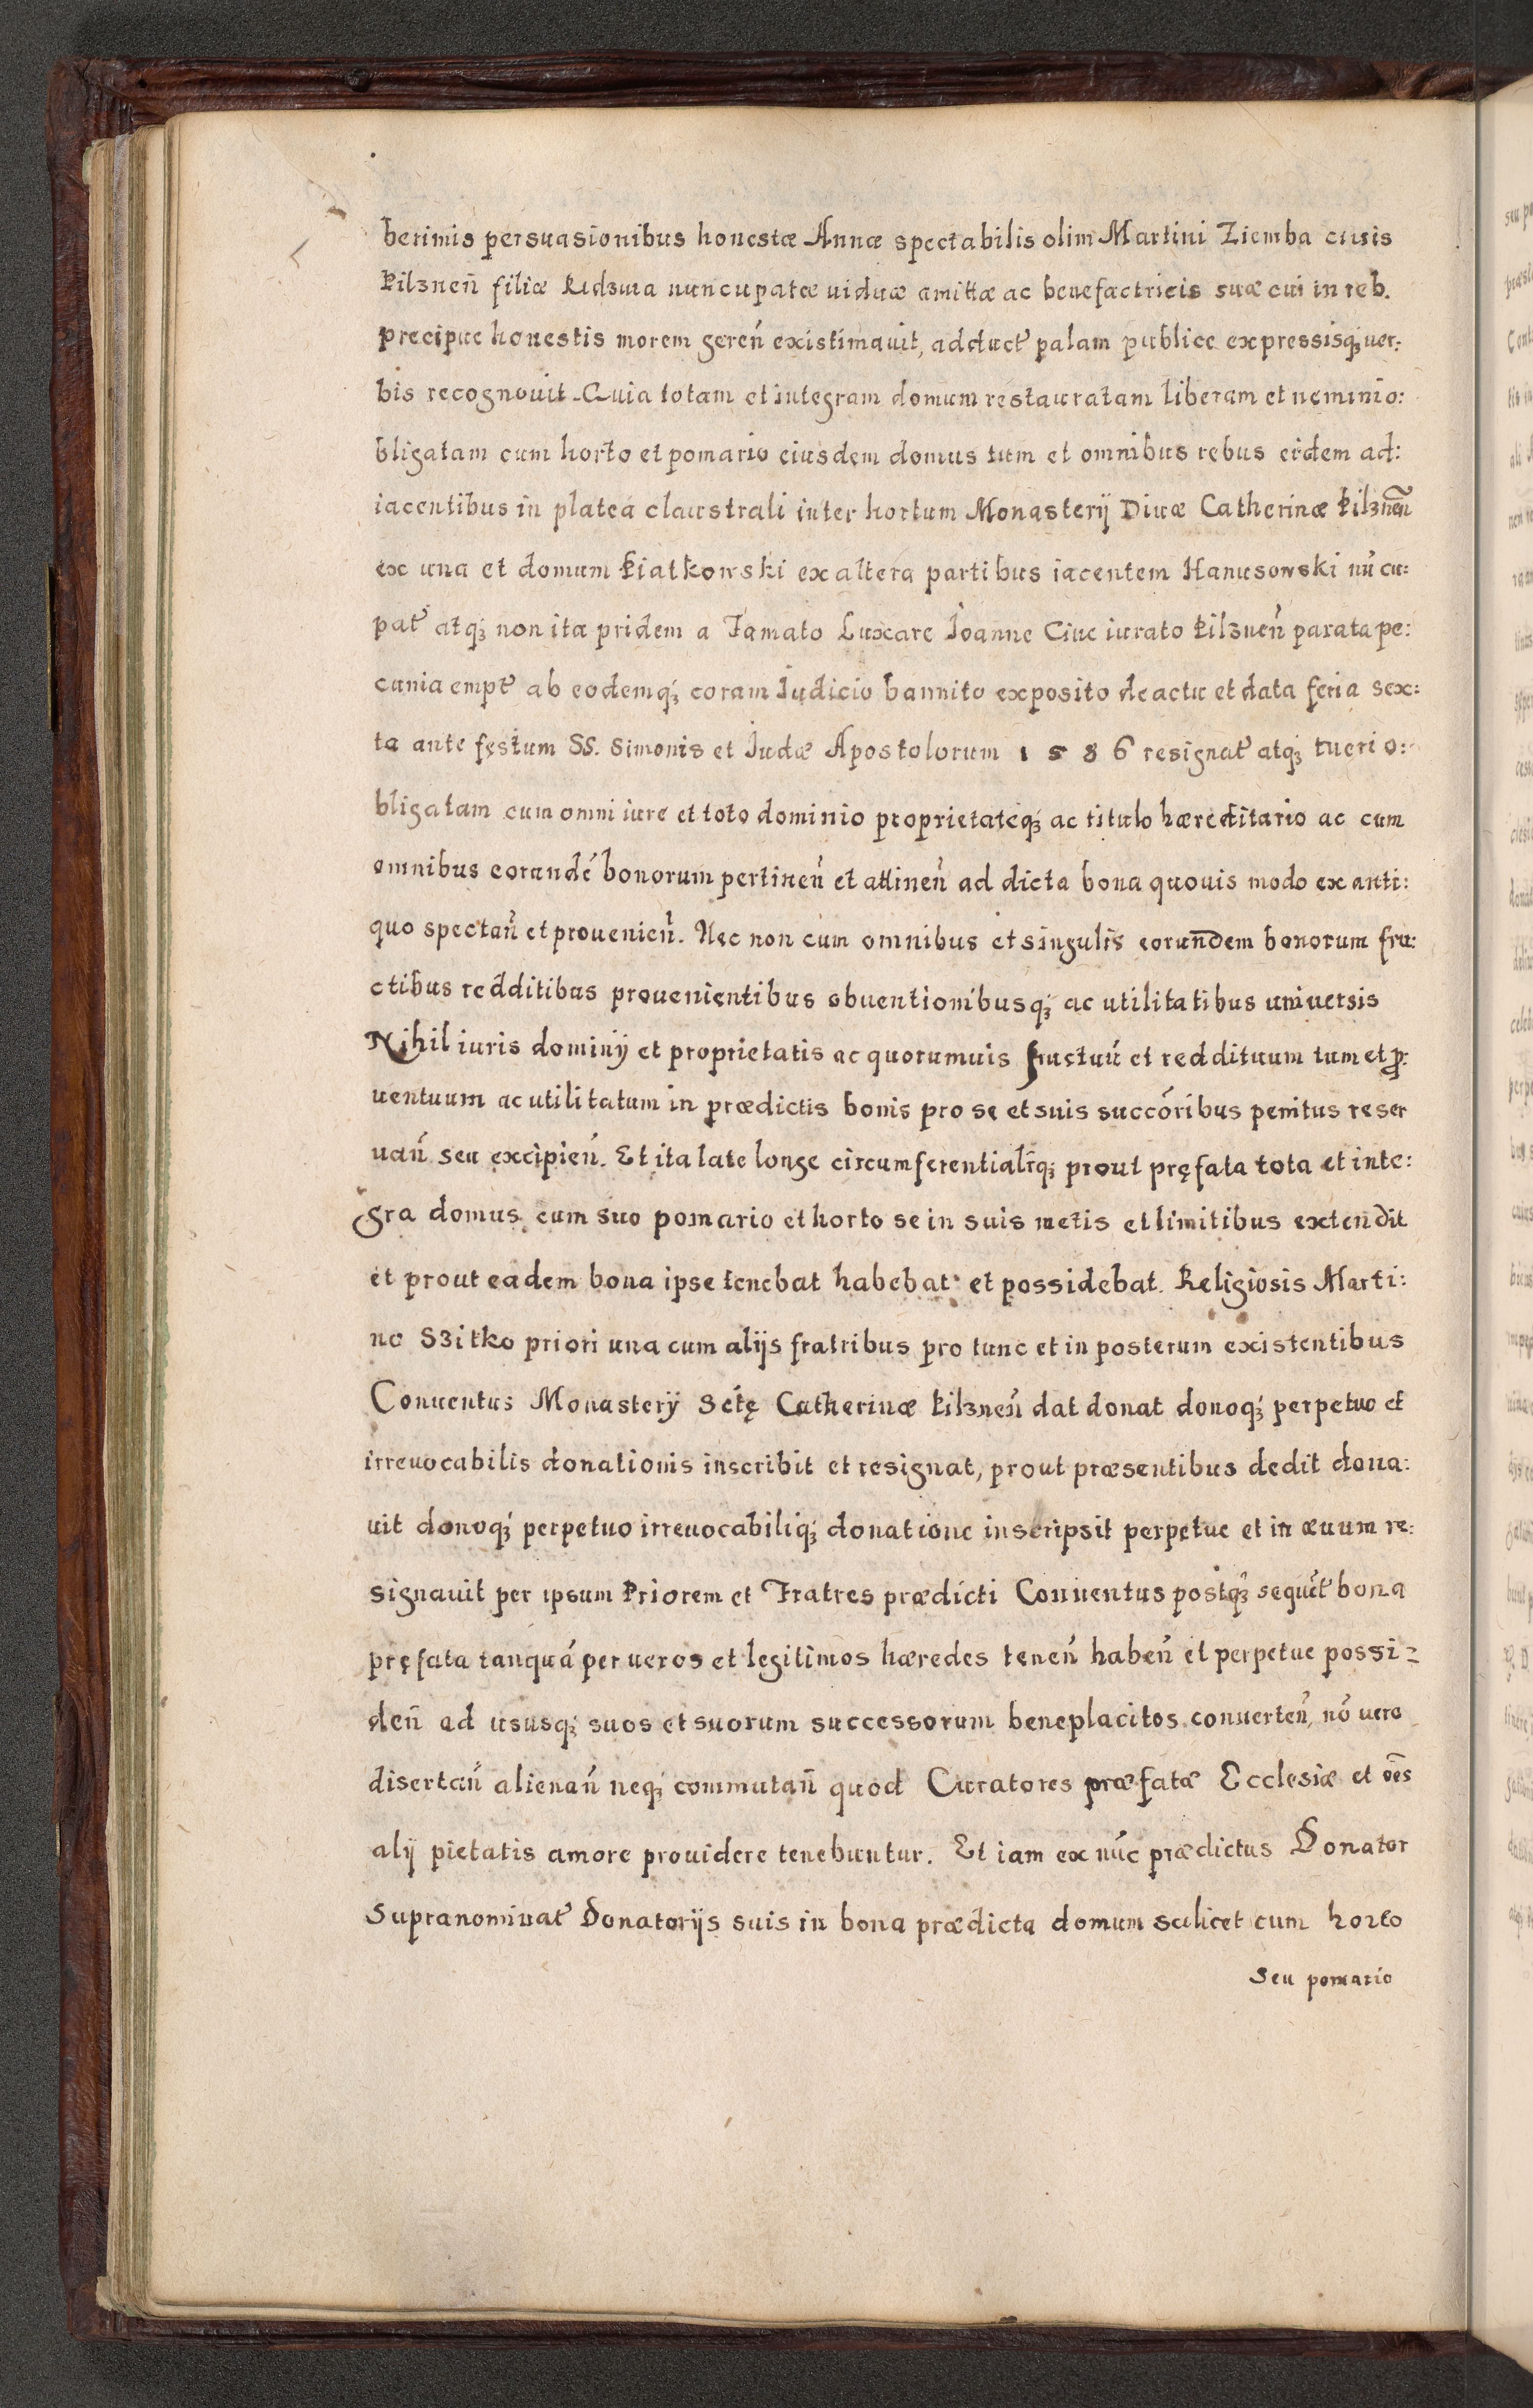 berimis persuasionibus honestæ Annæ spectabilis olim Martini Ziemba ciuis
Pilznen̄ filiæ nuncupatæ uiduæ amittæ ac benefactricis suæ cui in reb.
precipue honestis morem geren̄ existimauit, adduct̉ palam publice expressisqꝫ uer:
bis recognouit. Quia totam et integram domum restauratam liberam et nemini o:
bligatam cum horto et pomario eiusdem domus tum et omnibus rebus eidem ad:
iacentibus in platea claustrali inter hortum Monasterij Diuæ Catherinæ Pilznen̄
ex una et domum Piatkowski ex altera partibus iacentem Hanusowski nūcu:
pat̉ atqꝫ non ita pridem a Famato Luxare Joanne Ciue iurato Pilznen̄ parata pe:
cunia empt̉ ab eodemqꝫ coram Judicio bannito exposito de actu et data feria sex:
ta ante festum SS. Simonis et Judæ Apostolorum 1586 resignat̉ atqꝫ tueri o:
bligatam cum omni iure et toto dominio proprietateqꝫ ac titulo hæreditario ac cum
omnibus eorundē bonorum pertinen̄ et attinen̄ ad dicta bona quouis modo ex anti:
quo spectan̄ et prouenien̄. Nec non cum omnibus et singulis eorundem bonorum fru:
ctibus redditibus prouenientibus obuentionibusqꝫ ac utilitatibus uniuersis
Nihil iuris dominij et proprietatis ac quorumuis fructuū et reddituum tum et ꝓ:
uentuum ac utilitatum in prædictis bonis pro se et suis succōribus penitus reser
uan̄ seu excipien̄. Et ita late longe circumferentialiqꝫ prout pręfata tota et inte:
gra domus cum suo pomario et horto se in suis metis et limitibus extendit
et prout eadem bona ipse tenebat habebat et possidebat. Religiosis Marti:
no Szitko priori una cum alijs fratribus pro tunc et in posterum existentibus
Conuentus Monasterij Sctę Catherinæ Pilznen̄ dat donat donoqꝫ perpetuo et
irreuocabilis donationis inscribit et resignat, prout præsentibus dedit dona:
uit donoqꝫ perpetuo irreuocabiliqꝫ donatione inscripsit perpetue et in æuum re:
signauit per ipsum Priorem et Fratres prædicti Conuentus postqꝫ bona
pręfata tanquā per ueros et legitimos hæredes tenen̄ haben̄ et perpetue possi:
den̄ ad ususqꝫ suos et suorum successorum beneplacitos conuerten̄, nō uero
disertan̄ alienan̄ neqꝫ commutan̄ quod Curatores præfatæ Ecclesiæ et oēs
alij pietatis amore prouidere tenebuntur. Et iam ex nūc prædictus Donator
Supranominat̉ Donatorijs suis in bona prædicta domum scilicet cum horto
seu pomario